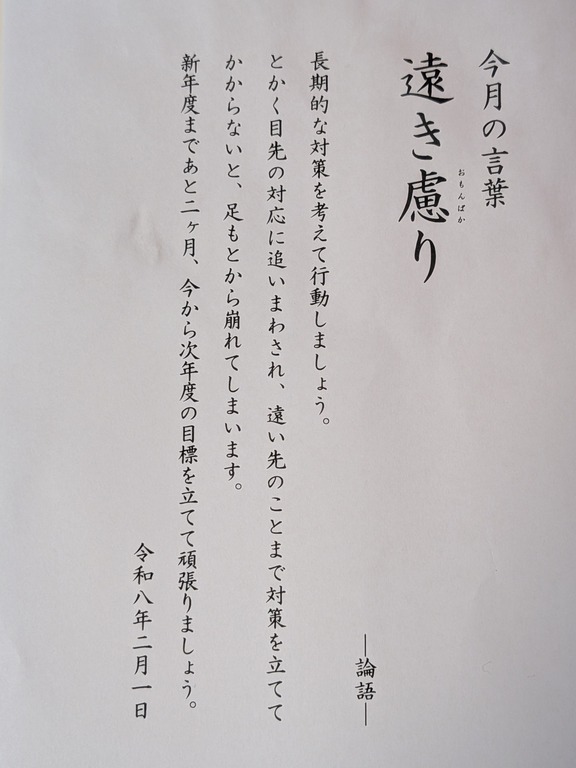 今月の言葉
遠き慮り
おもんぱか
―論語―
長期的な対策を考えて行動しましょう。
とかく目先の対応に追いまわされ、遠い先のことまで対策を立てて
かからないと、足もとから崩れてしまいます。
新年度まであと二ヶ月、今から次年度の目標を立てて頑張りましょう。
令和八年二月一日